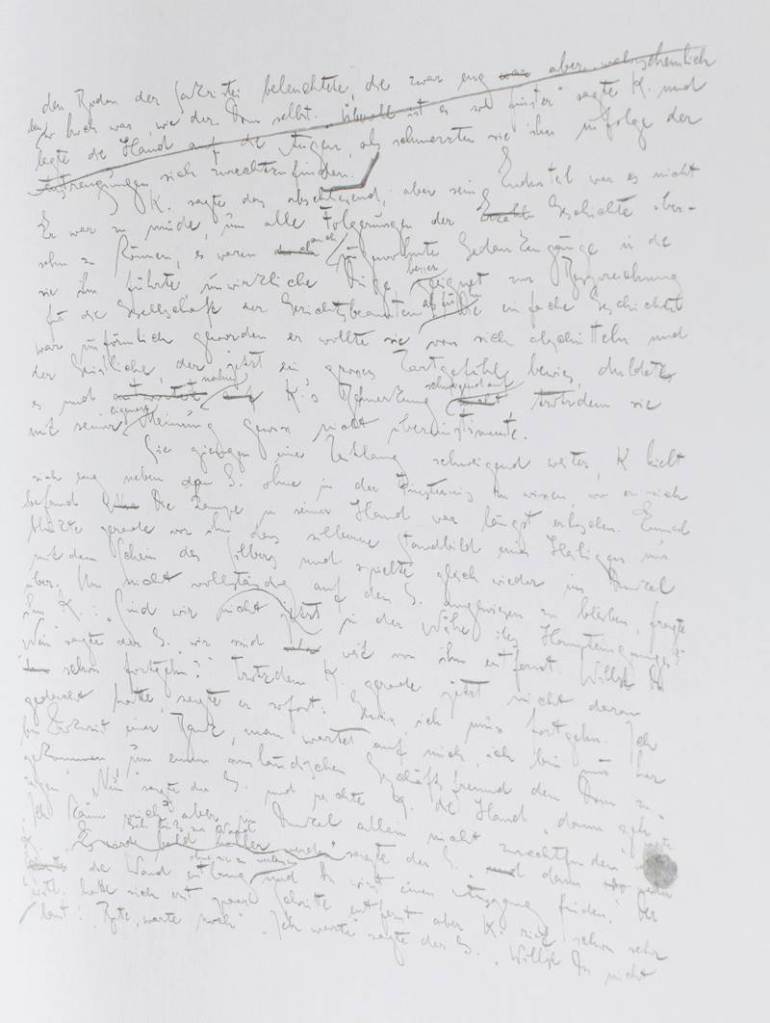 den Boden der Sakristei beleuchtete, die zwar eng aber wahrscheinlich
so hoch war, wie der Dom selbst. „Überall ist es so finster" sagte K. und
legte die Hand auf die Augen, als schmerzten sie ihn infolge der
Anstrengungen sich zurechtzufinden.
K. sagte das abschliessend, aber sein Endurteil war es nicht
Er war zu müde, um alle Folgerungen der Geschichte über-
sehn zu können, es waren auch ungewohnte Gedankengänge in die
sie ihn führte unwirkliche Dinge besser geeignet zur Besprechung
für die Gesellschaft der Gerichtsbeamten als für ihn Die einfache Geschichte
war unförmlich geworden er wollte sie von sich abschütteln und
der Geistliche, der jetzt ein grosses Zartgefühl bewies, duldete
es und nahm K.'s Bemerkung schweigend auf, trotzdem sie
mit seiner eigenen Meinung gewiss nicht übereinstimmte.
Sie giengen eine Zeitlang schweigend weiter, K hielt
sich eng neben dem G. ohne in der Finsternis zu wissen wo er sich
befand Die Lampe in seiner Hand war längst erloschen. Einmal
blinkte gerade vor ihm das silberne Standbild eines Heiligen nur
mit dem Schein des Silbers und spielte gleich wieder ins Dunkel
über. Um nicht vollständig auf den G. angewiesen zu bleiben, fragte
ihn K.: „Sind wir nicht jetzt in der Nähe des Haupteinganges?"
„Nein" sagte der G. „wir sind weit von ihm entfernt. Willst Du
schon fortgehn?" Trotzdem K. gerade jetzt nicht daran
gedacht hatte, sagte er sofort: „Gewiss, ich muss fortgehn. Ich
bin Prokurist einer Bank, man wartet auf mich, ich bin nur her
gekommen, um einem ausländischen Geschäftsfreund den Dom zu
zeigen." „Nun" sagte der G. und reichte K. die Hand, „dann geh"
„Ich kann mich aber im Dunkel allein nicht zurechtfinden" sagte
K. „Geh links zur Wand" sagte der G. „dann weiter
die Wand entlang ohne sie zu verlassen und Du wirst einen Ausgang finden." Der
Geistl. hatte sich erst paar Schritte entfernt aber K. rief schon sehr
laut: „Bitte, warte noch". „Ich warte" sagte der G. „Willst Du nicht